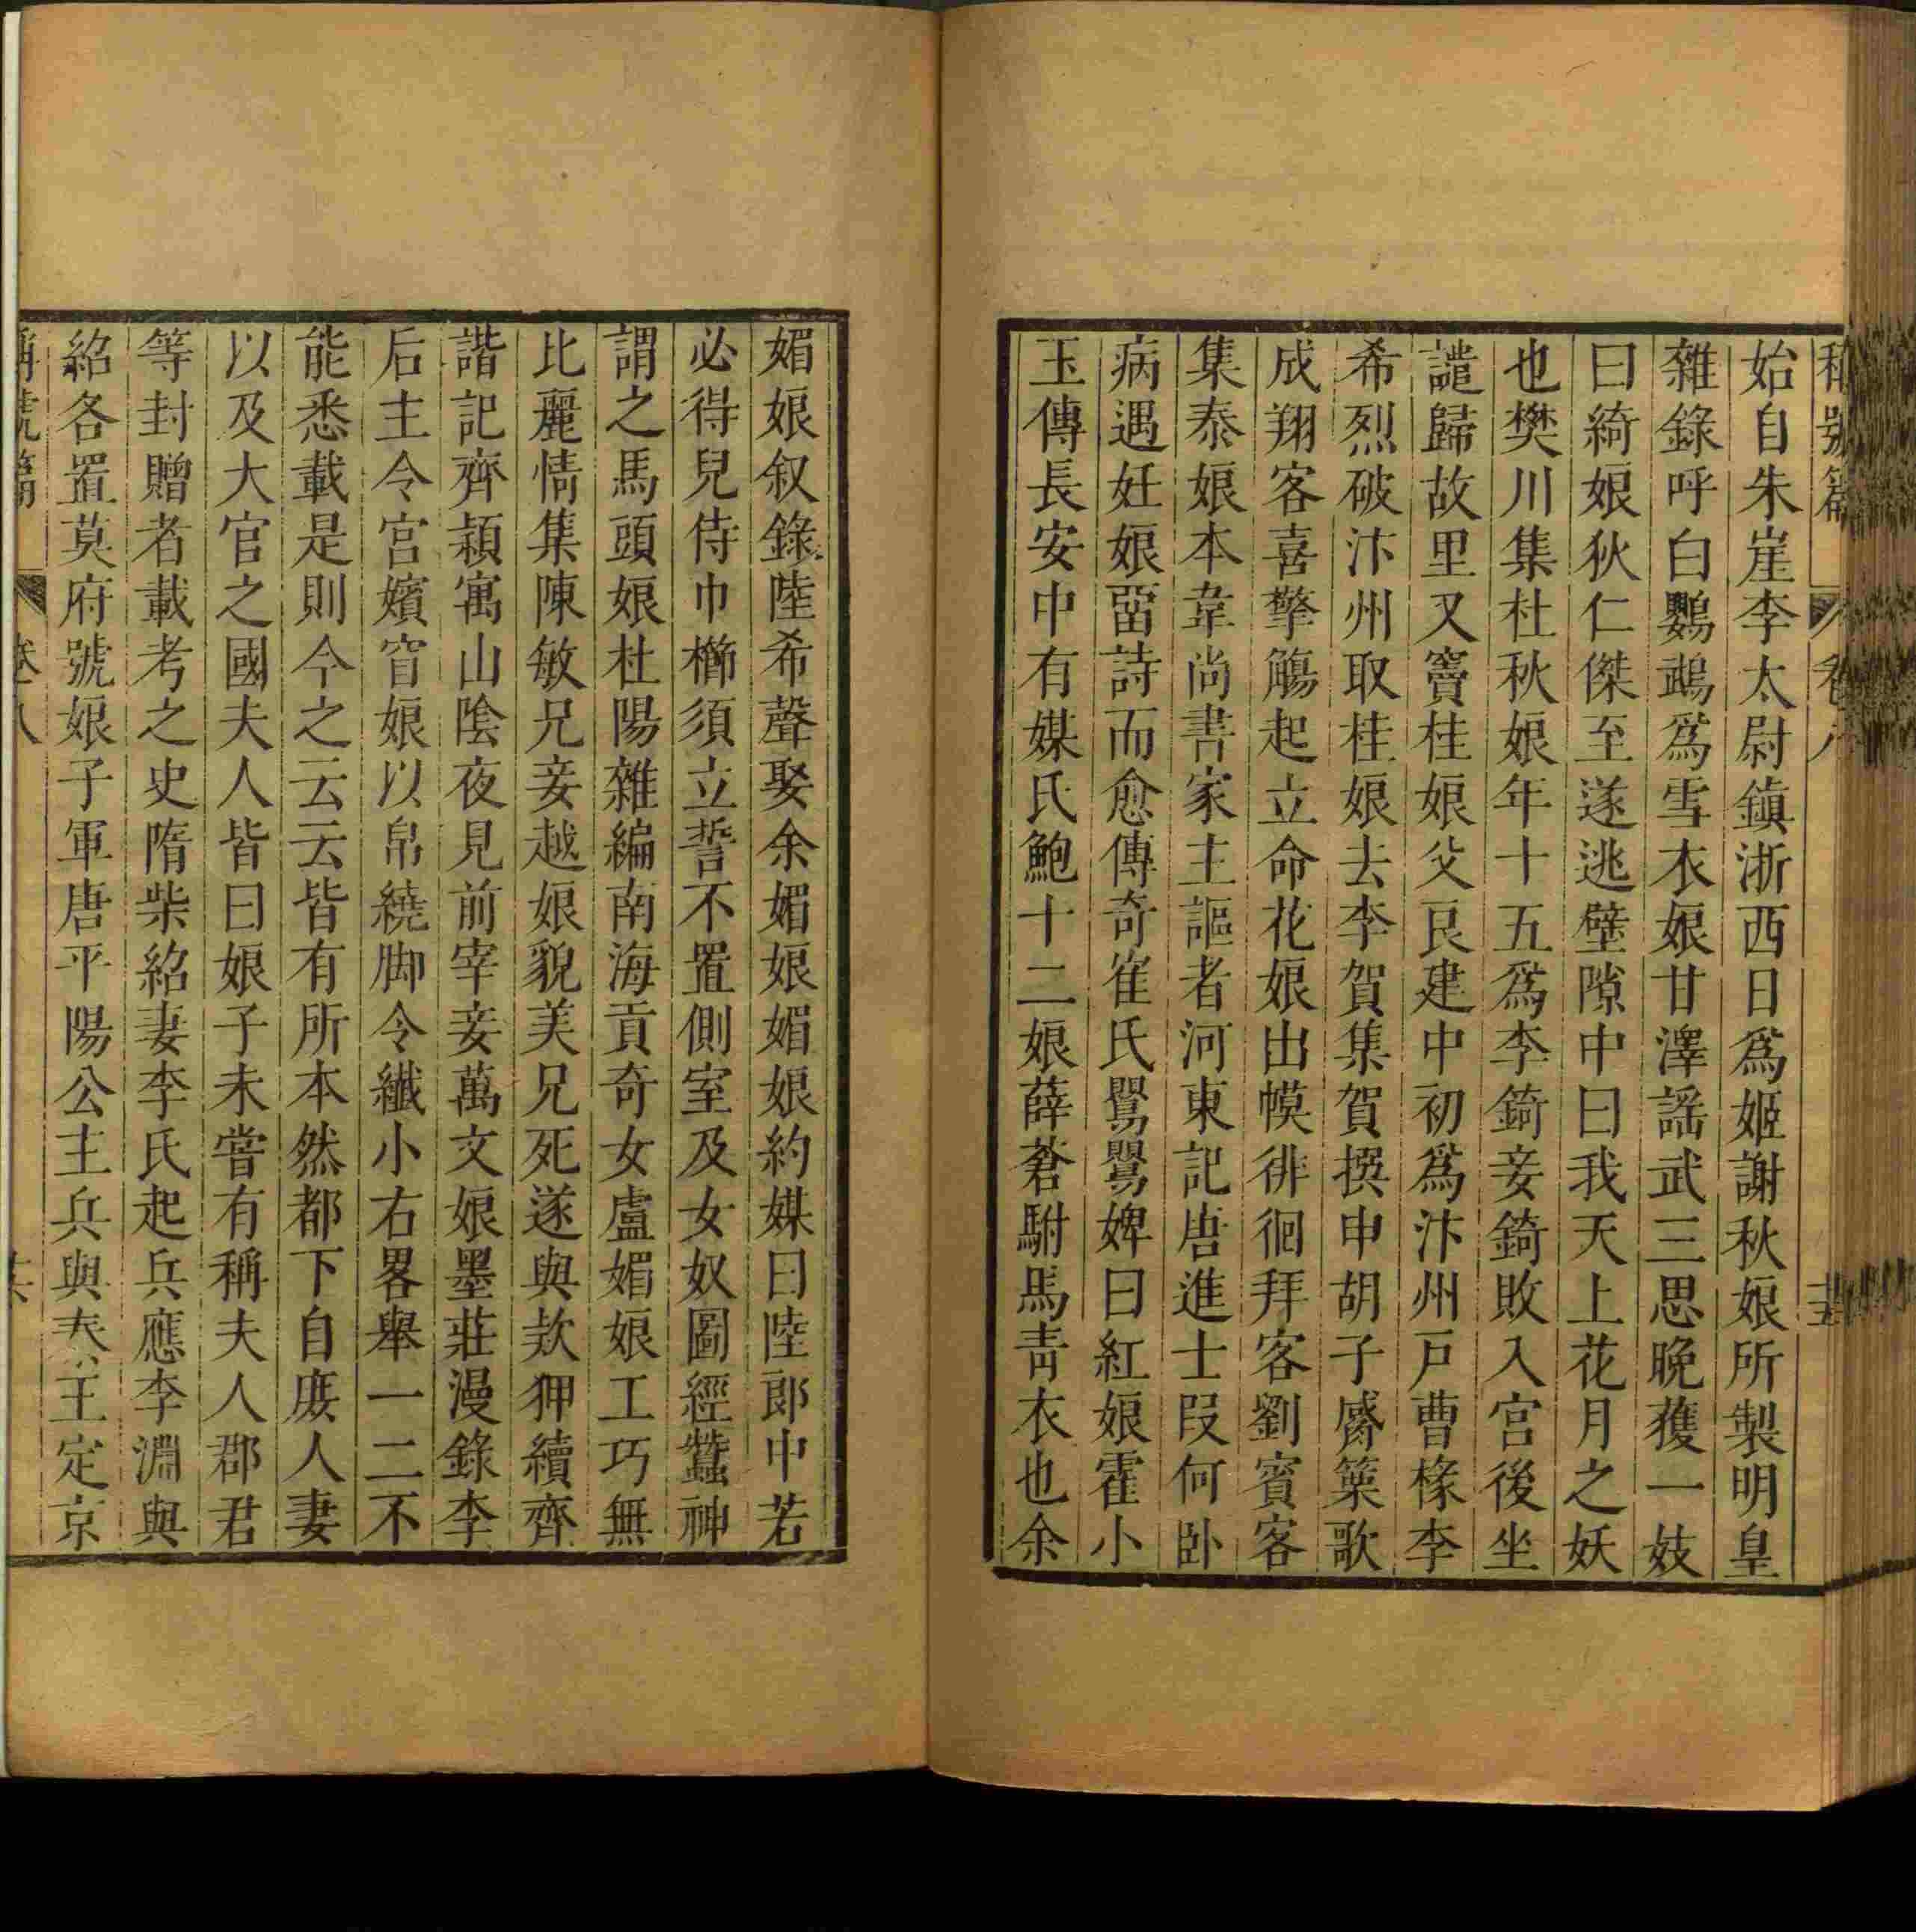 稱號篇 卷八 十五
始自朱崖李太尉鎮浙西日爲姬謝秋娘所製明皇
雜錄呼白鸚鵡爲雪衣娘甘澤謡武三思晚獲一妓
曰綺娘狄仁傑至遂逃壁隙中曰我天上花月之妖
也樊川集杜秋娘年十五爲李錡妾錡敗入宮後坐
譴歸故里又竇桂娘父良建中初爲汴州戸曹椽李
希烈破汴州取桂娘去李賀集賀撰申胡子觱篥歌
成翔客喜擎觴起立命花娘出幙徘徊拜客劉賓客
集泰娘本韋尚書家主謳者河東記唐進士段何卧
病遇妊娘畱詩而愈傳奇崔氏鸎鸎婢曰紅娘霍小
玉傳長安中有媒氏鮑十二娘薛蒼駙馬青衣也余
媚娘叙錄陸希聲娶余媚娘媚娘約媒曰陸郎中若
必得兒侍巾櫛須立誓不置側室及女奴圖經蠶神
謂之馬頭娘杜陽雜編南海貢奇女盧媚娘工巧無
比麗情集陳敏兄妾越娘貌美兄死遂與欵狎續齊
諧記齊頴寓山陰夜見前宰妾萬文娘墨莊漫錄李
后主令宮嬪窅娘以帛繞脚令纎小右畧舉一二不
能悉載是則今之云云皆有所本然都下自庻人妻
以及大官之國夫人皆曰娘子未嘗有稱夫人郡君
等封贈者載考之史隋柴紹妻李氏起兵應李淵與
紹各置莫府號娘子軍唐平陽公主兵與秦王定京
稱號篇 卷八 十六